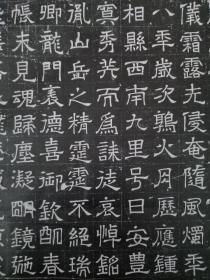 儀霜露先侵奄隨風燭平
八年歲次鶉火月應風
相縣西南九里号曰安豊
秀共而爲誄徒哀悼銘
胤山岳之精靈不絕瑞
卿龍門裏德喜御欽明春
帳未見魂歸塵凝鏡弛